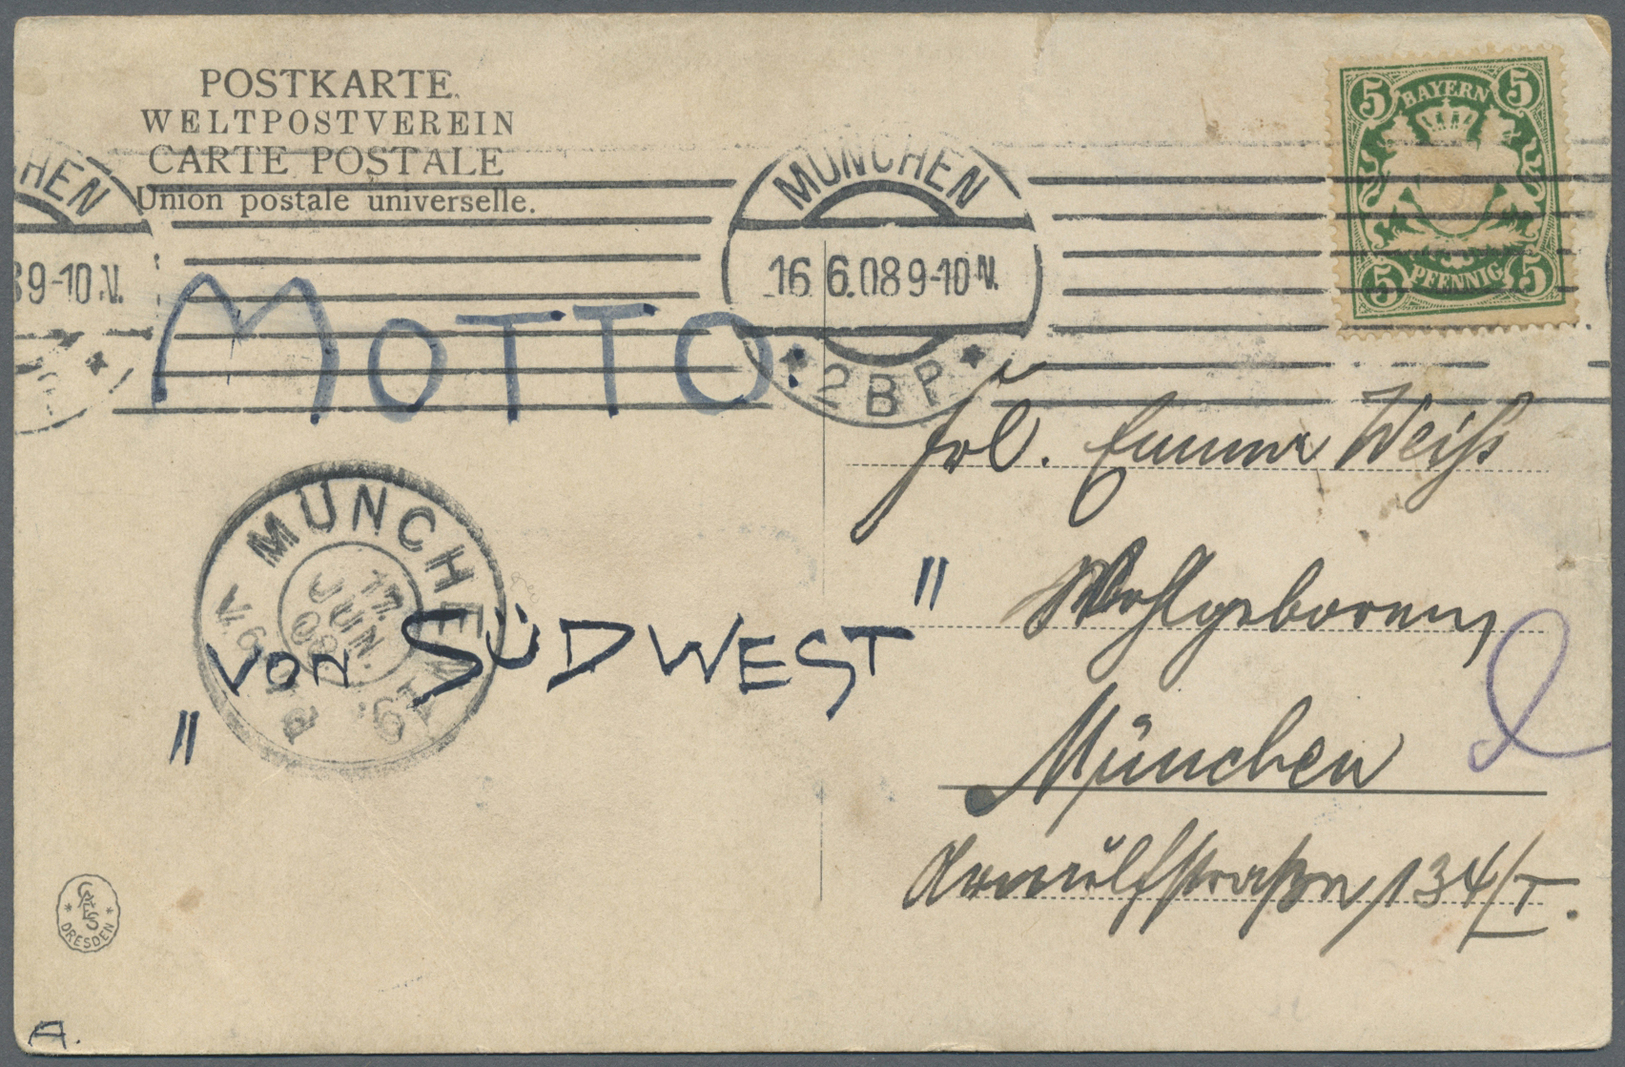 POSTKARTE.
WELTPOSTVEREIN
CARTE POSTALE
Union postale universelle.
5 BAYERN 5
5 PFENNIG 5
HEN
8 9-10 V.
MÜNCHEN
16.6.08 9-10 V.
2 B P
MOTTO:
Frl. Emma Weiß
Wohlgeboren
München
Arnulfstraße 134/I.
MÜNCHEN
17. JUN. 08
V. 6
"VON SÜDWEST"
DRESDEN
A.